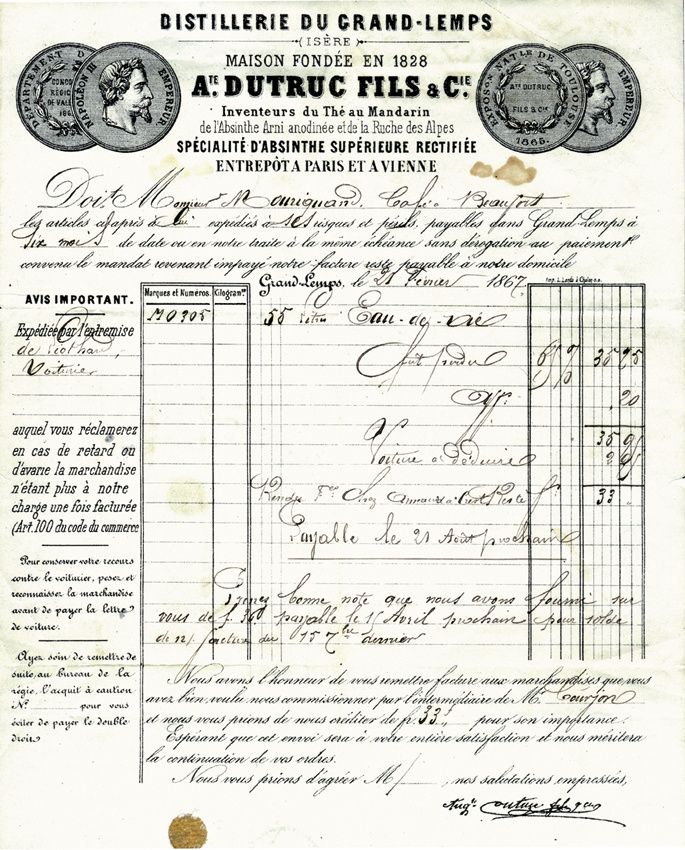 DISTILLERIE DU GRAND-LEMPS
(ISÈRE)
MAISON FONDÉE EN 1828
ATE. DUTRUC FILS & CIE.
Inventeurs du Thé au Mandarin
de l'Absinthe Arni anodinée et de la Ruche des Alpes
SPÉCIALITÉ D'ABSINTHE SUPÉRIEURE RECTIFIÉE
ENTREPÔT A PARIS ET A VIENNE
DÉPARTEMENT D
CONCO
RÉGIO
DE VALE
186
NAPOLEON III EMPEREUR
EXPOSON NATLE DE TOULOUSE
ATE DUTRUC
FILS & CIE
1865.
EMPEREUR
Doit Monsieur Café Beaufort
les articles ci après à lui expédiés à ses risques et périls, payables dans Grand-Lemps à
Six mois de date ou en notre traite à la même échéance sans dérogation au paiement
convenu le mandat revenant impayé notre facture reste payable à notre domicile
Grand-Lemps, le 21 Février 1867
AVIS IMPORTANT.
Expédiée par l'entremise
de
Voiturier
auquel vous réclamerez
en cas de retard ou
d'évarie la marchandise
n'étant plus à notre
charge une fois facturée
(Art. 100 du code du commerce
Pour conserver votre recours
contre le voiturier, pesez et
reconnaissez la marchandise
avant de payer la lettre
de voiture.
Ayez soin de remettre de
suite au bureau de la
régie, l'acquit à caution
N° pour vous
éviter de payer le double
droit.
Marques et Numéros. Kilogram.
55 litres Eau-de-vie
fût perdu 65 % 35 75
20
35 95
Voiture à déduire 2 95
33
Payable le 21 Août prochain
bonne note que nous avons fourni sur
vous de f. 360 payable le 1er Avril prochain pour solde
de n/ facture du 15 7bre dernier
Nous avons l'honneur de vous remettre facture aux marchandises que vous
avez bien voulu nous commissionner par l'intermédiaire de Mr. Courjon
et nous vous prions de nous créditer de fr. 33 pour son importance.
Espérant que cet envoi sera à votre entière satisfaction et nous méritera
la continuation de vos ordres.
Nous vous prions d'agréer M , nos salutations empressées,